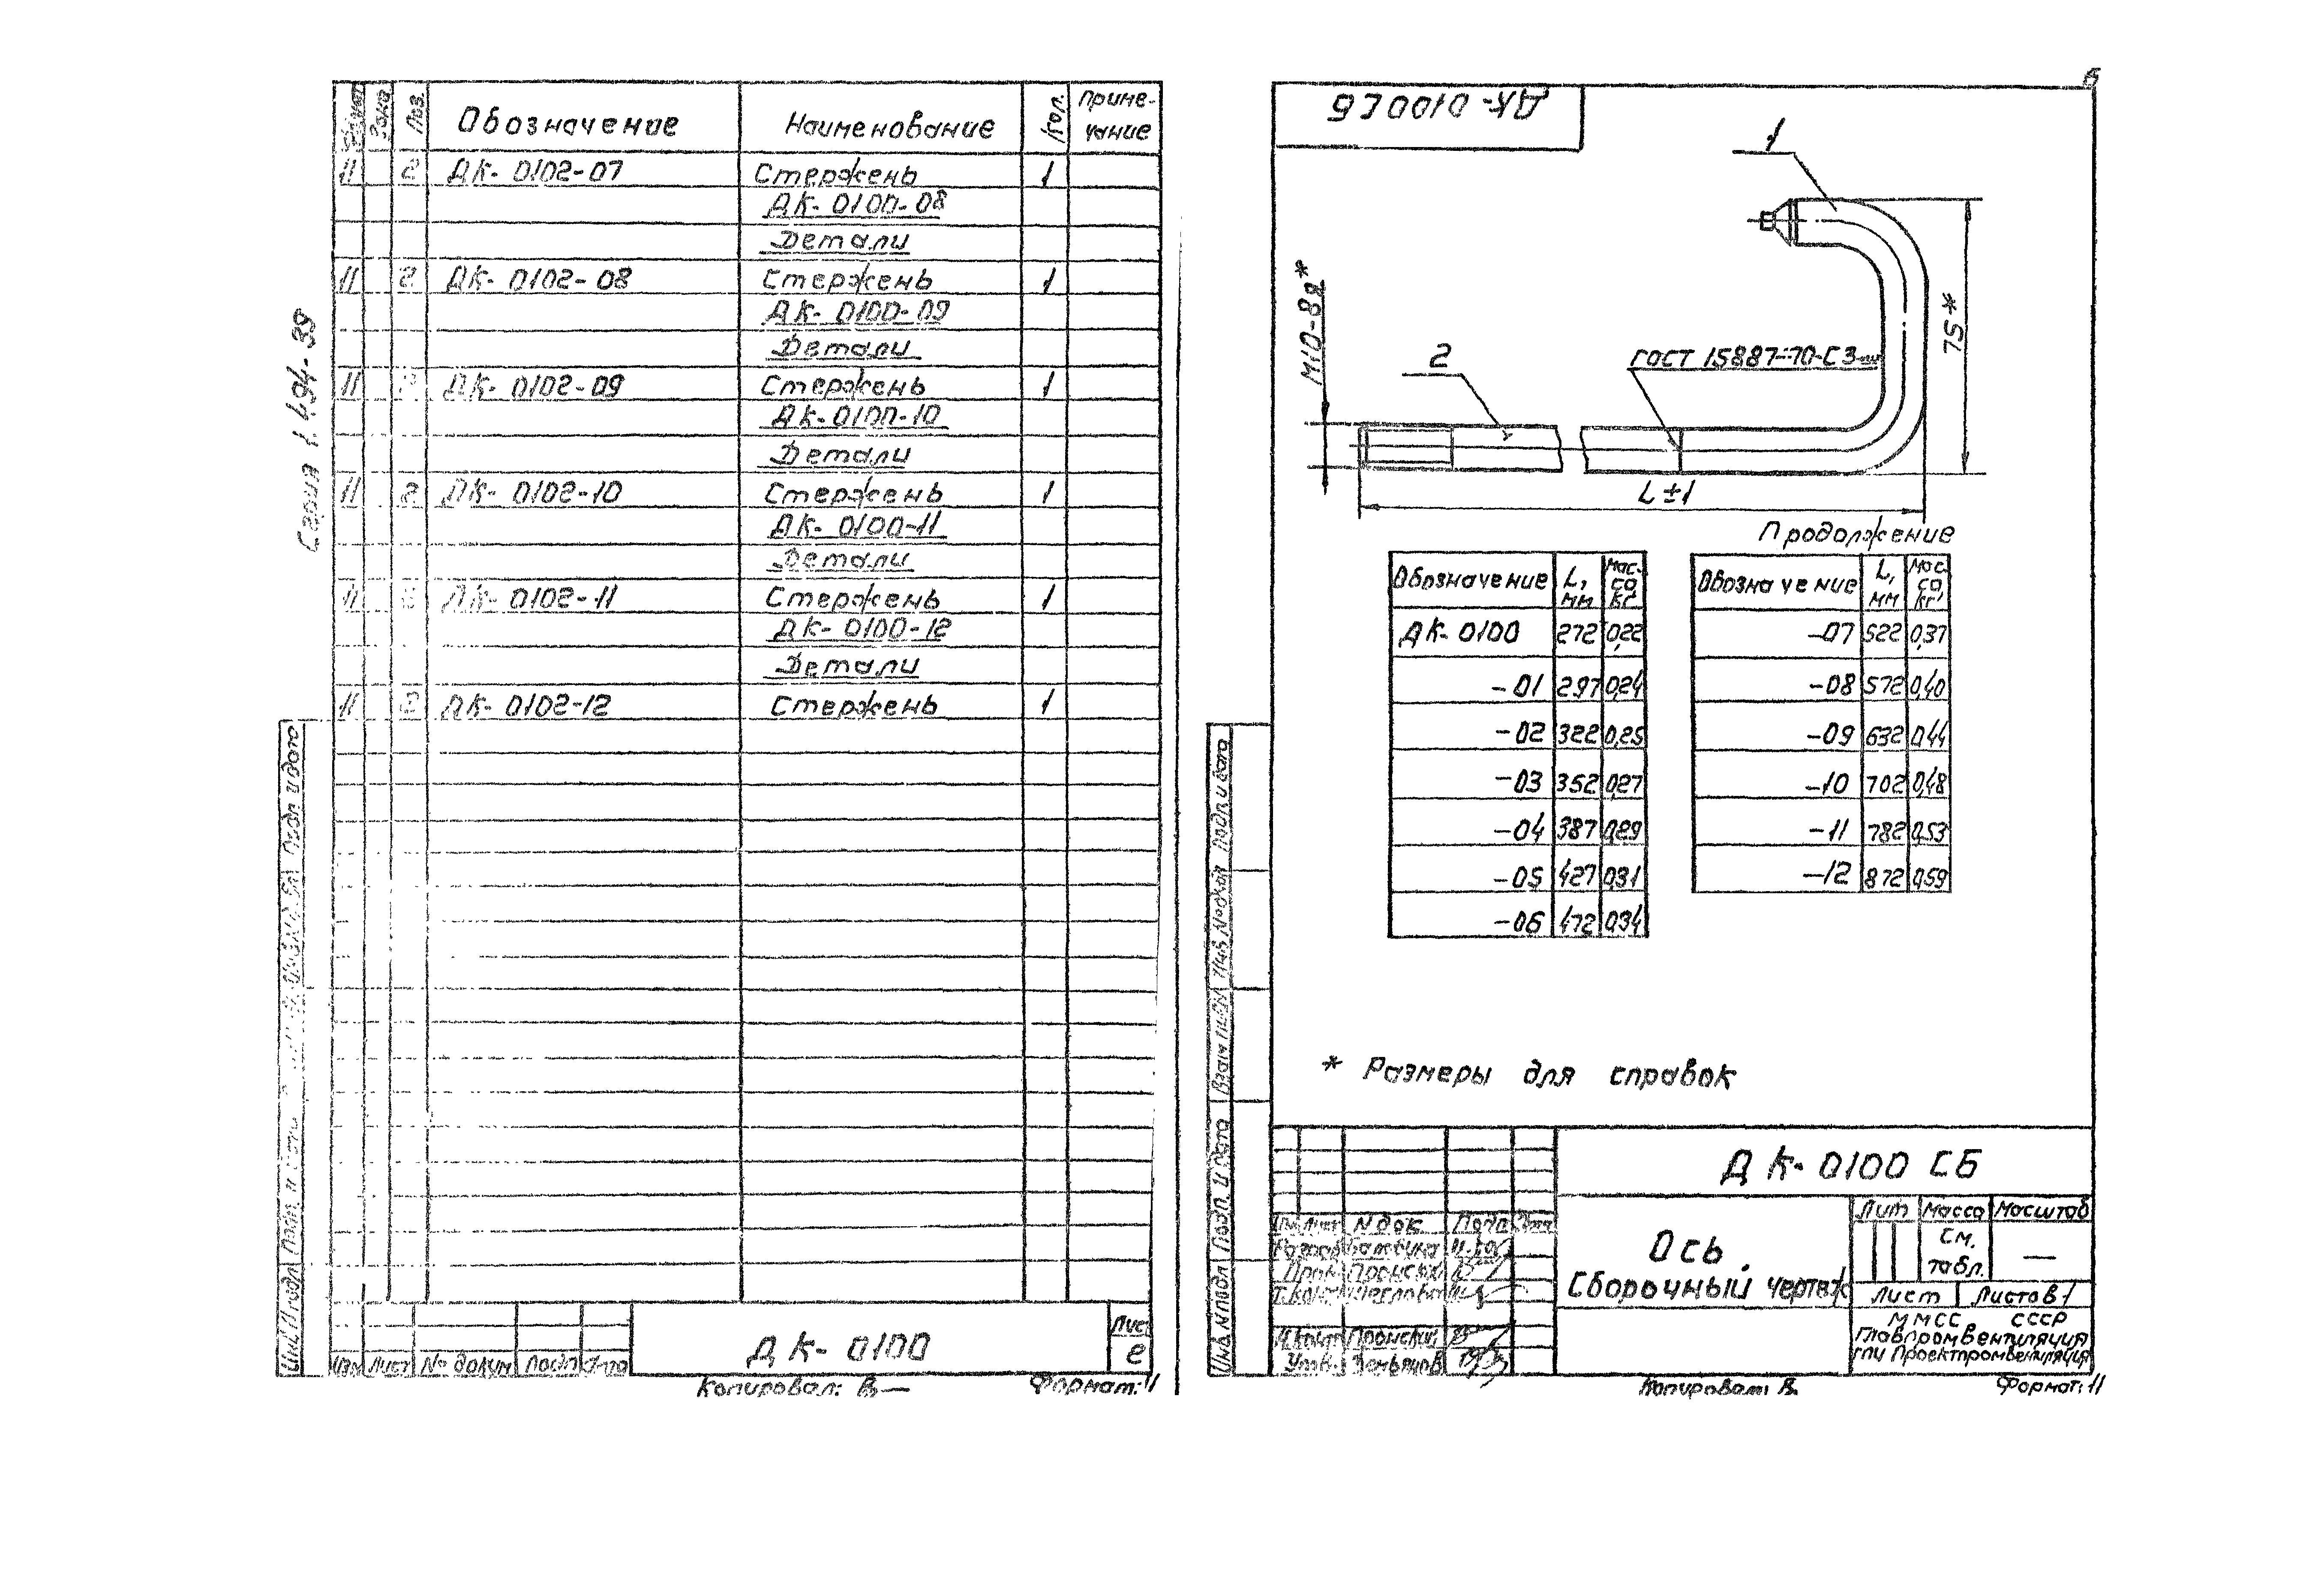 Серия 1.494-39
Формат Зона Поз. Обозначение Наименование Кол. Приме-
чание
11 2 ДК- 0102-07 Стержень 1
ДК- 0100-08
Детали
11 2 ДК- 0102-08 Стержень 1
ДК- 0100-09
Детали
11 2 ДК- 0102-09 Стержень 1
ДК-0100-10
Детали
11 2 ДК- 0102-10 Стержень 1
ДК- 0100-11
Детали
11 2 ДК- 0102-11 Стержень 1
ДК- 0100-12
Детали
11 2 ДК- 0102-12 Стержень 1
Подп и дата
Подп. и дата
Инв. N подл
Изм Лист № докум Подп Дата
ДК- 0100
Лист
2
Копировал: В— Формат: 11
6
ДК- 0100СБ
1
2
М10-8g*
ГОСТ 15887-70-С3-
75*
L±1
Обозначение L, мм Мас-са, кг
ДК- 0100 272 0,22
-01 297 0,24
-02 322 0,25
-03 352 0,27
-04 387 0,29
-05 427 0,31
-06 472 0,34
Продолжение
Обозначение L, мм Мас-са, кг
-07 522 0,37
-08 572 0,40
-09 632 0,44
-10 702 0,48
-11 782 0,53
-12 872 0,59
* Размеры для справок
Подп и дата
Инв № дубл
Взам инв
Подп. и дата
Инв. N подл
ДК- 0100 СБ
Изм Лист N док. Подп. Дата
Разраб
Пров.
Т. конт
Н. конт
Утв.
Ось.
Сборочный чертеж
Лит Масса Масштаб
См.
табл. —
Лист Листов 1
ММСС СССР
Главпромвентиляция
ГПИ Проектпромвентиляция
Копировал: В. Формат: 11